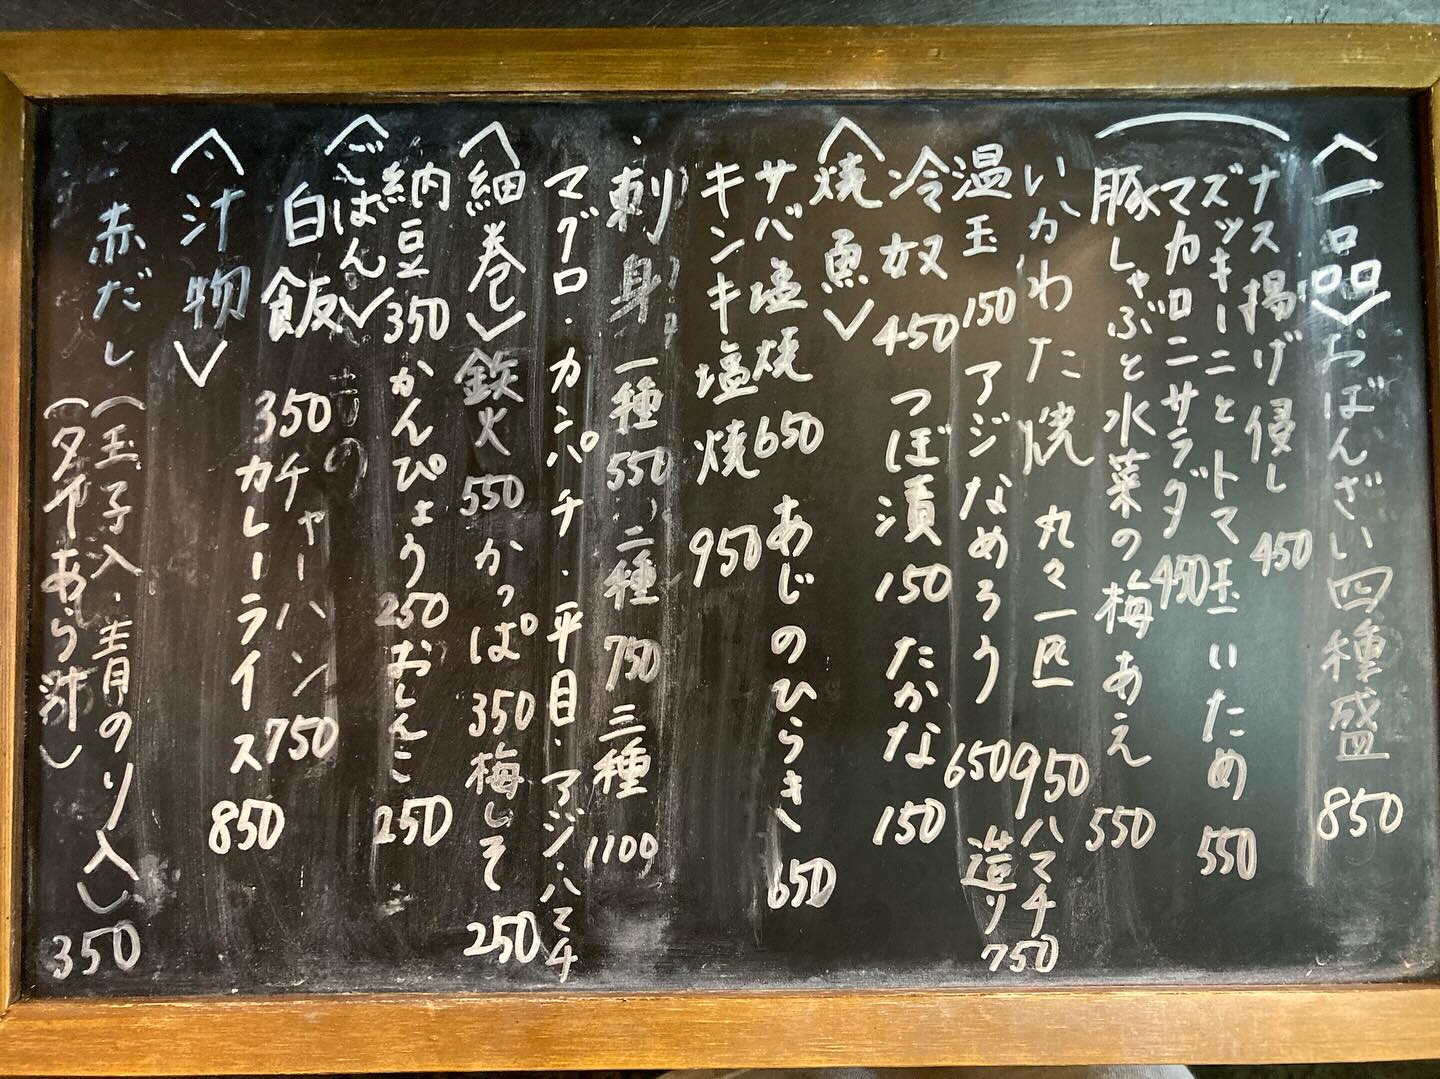 〈一品〉おばんざい四種盛 850
ナス揚げ浸し 450
ズッキーニとトマト玉いため 550
マカロニサラダ 450
豚しゃぶと水菜の梅あえ 550
いかわた焼 丸々一匹 950
ハマチ造り 750
温玉 150 アジなめろう 650
冷奴 450 つぼ漬 150 たかな 150
〈焼魚〉
サバ塩焼 650 あじのひらき 650
キンキ塩焼 950
刺身 一種 550 二種 750 三種 1100
マグロ・カンパチ・平目・アジ・ハマチ
〈細巻〉鉄火 550 かっぱ 350 梅しそ 250
納豆 350 かんぴょう 250 おしんこ 250
〈ごはんもの〉
白飯 350 チャーハン 750
カレーライス 850
〈汁物〉
赤だし (玉子入・青のり入) 350
(タイあら汁)